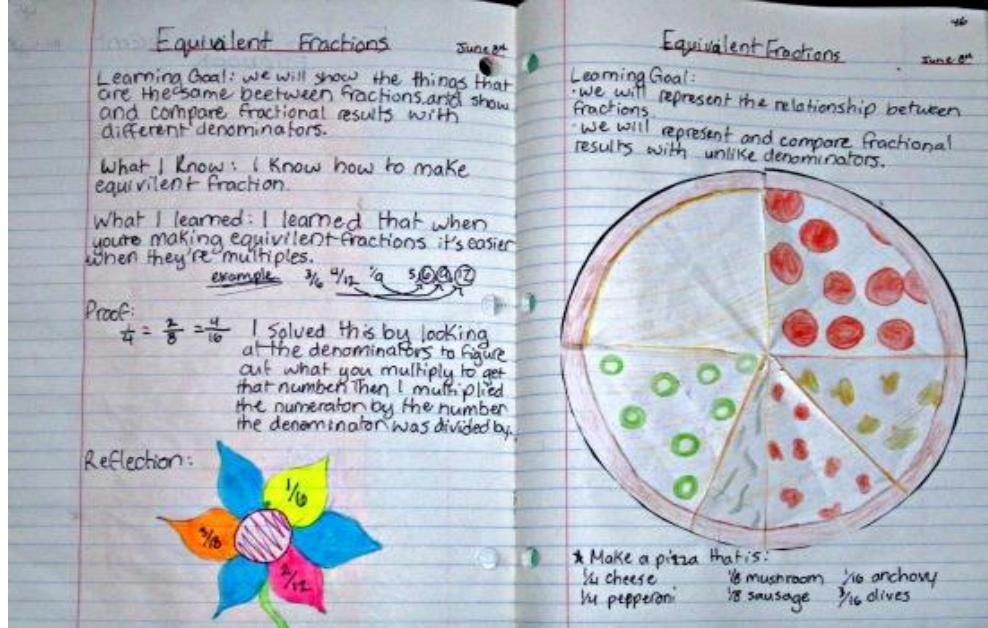 Equivalent Fractions
June 8th
Learning Goal: we will show the things that
are the same beetween fractions and show
and compare fractional results with
different denominators.
What I Know: I know how to make
equivilent fraction.
What I learned: I learned that when
you're making equivilent fractions it's easier
when they're multiples.
example 3/6 4/12 1/9 3, 6, 9, 12
Proof:
1/4 = 2/8 = 4/16 I solved this by looking
at the denominators to figure
out what you multiply to get
that number. Then I multiplied
the numerator by the number
the denominator was divided by.
Reflection:
1/6
3/18
2/12
46
Equivalent Fractions
June 8th
Learning Goal:
·we will represent the relationship between
fractions
·we will represent and compare fractional
results with unlike denominators.
* Make a pizza that is:
1/4 cheese 1/8 mushroom 1/16 anchovy
1/4 pepperoni 1/8 sausage 3/16 olives